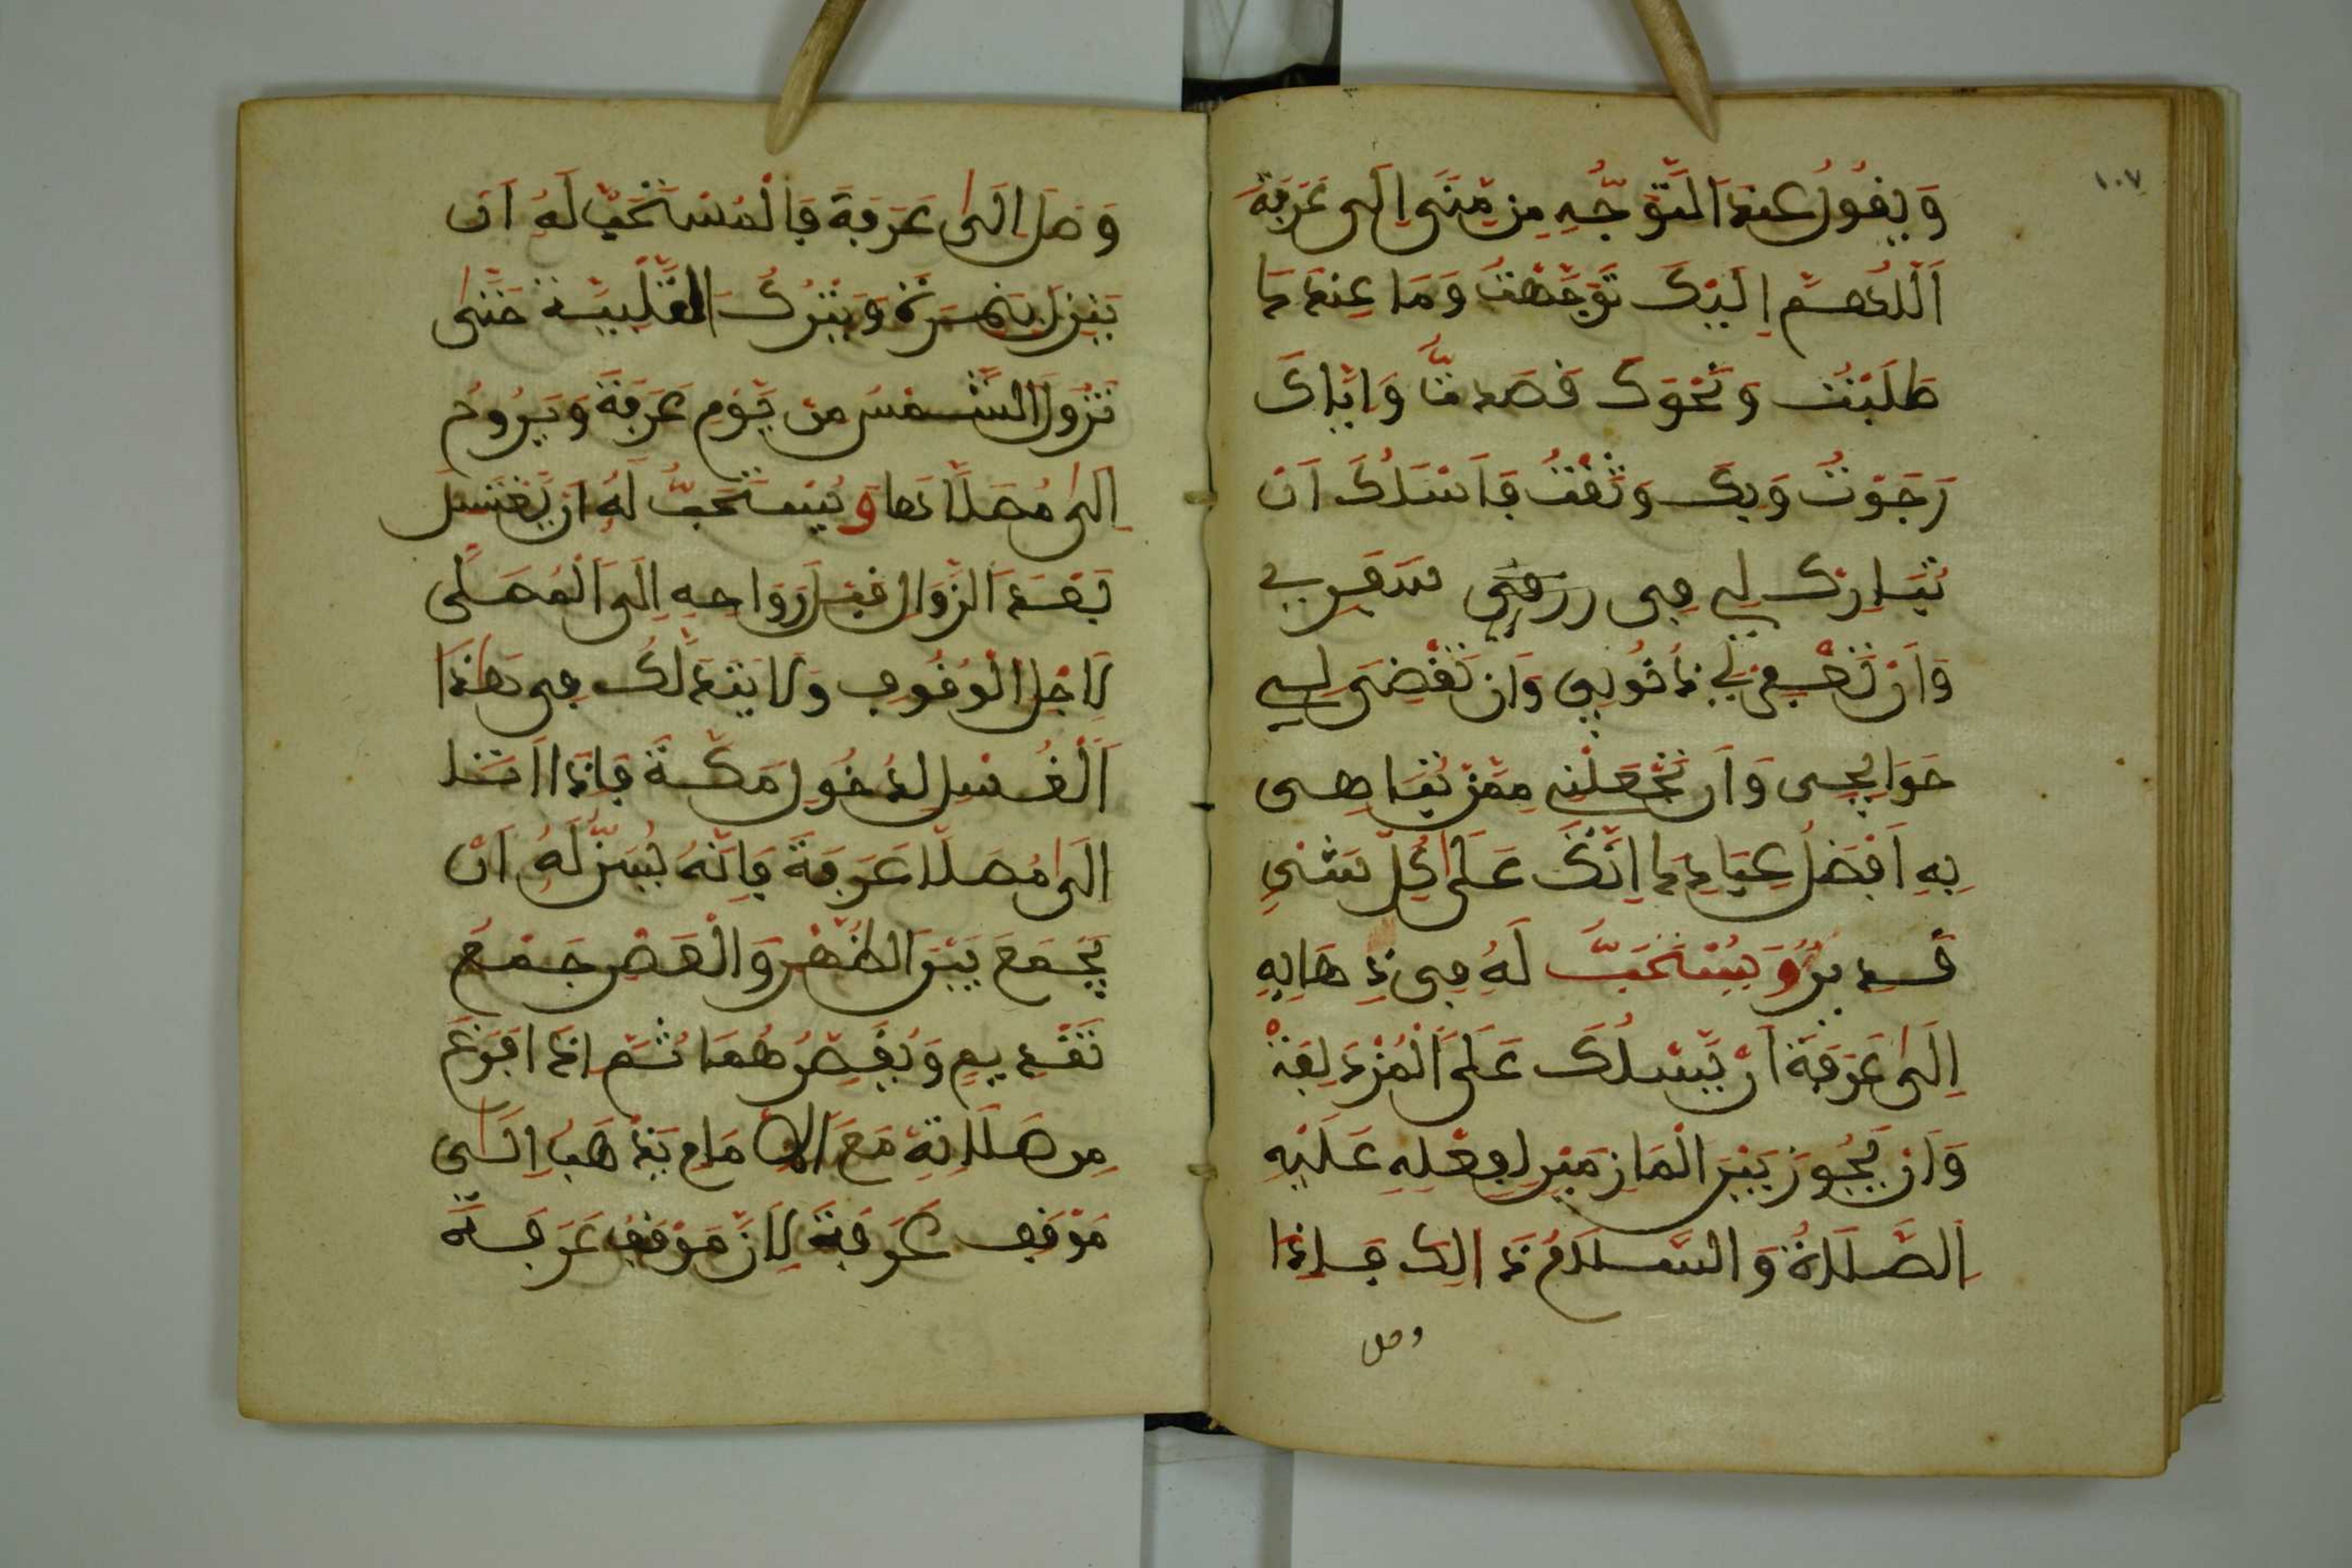 ١٠٧
وَيَقُولُ عِنْدَ التَّوَجُّهِ مِن مِّنَى إِلَى عَرَفَةَ
اَللَّهُمَّ إِلَيْكَ تَوَجَّهْتُ وَمَا عِنْدَكَ
طَلَبْتُ وَنَحْوَكَ قَصَدتُّ وَإِيَّاكَ
رَجَوْتُ وَبِكَ وَثَقْتُ فَأَسْئَلُكَ أَنْ
تُبَارِكَ لِي فِي سَفَرِي
وَأَنْ تَغْفِرَ لِي ذُنُوبِي وَأَن تَقْضِيَ لِي
حَوَائِجِي وَأَن تَجْعَلَنِي مِمَّن تُبَاهِي
بِهِ أَفْضَلُ عِبَادِكَ إِنَّكَ عَلَى كُلِّ شَيْءٍ
قَدِيرٌ وَيُسْتَحَبُّ لَهُ فِي ذِهَابِهِ
إِلَى عَرَفَةَ أَن يَّسْلُكَ عَلَى الْمُزْدَلِفَةْ
وَأَن يَجُوزَ بَيْنَ الْمَازِمَيْنِ لِفِعْلِهِ عَلَيْهِ
الصَّلَاةُ وَالسَّلَامُ ذَالِكَ فَإِذَا
وصل
وَصَلَ إِلَى عَرَفَةَ فَالْمُسْتَحَبُّ لَهُ أَن
يَنْزِلَ بِنَمِرَةَ وَيَتْرُكَ التَّلْبِيَةَ حَتَّى
تَزُولَ الشَّمْسُ مِن يَّوْمِ عَرَفَةَ وَيَرُوحُ
إِلَى مُصَلَّاهَا وَيُسْتَحَبُّ لَهُ أَن يَّغْتَسِلَ
بَعْدَ الزَّوَالِ قَبْلَ رَوَاحِهِ إِلَى الْمُصَلَّى
لِأَجْلِ الْوُقُوفِ وَلَا يَتَدَلَّك فِي هَذَا
اَلْغُسْلِ لِدُخُولِ مَكَّةَ فَإِذَا أَتَى
إِلَى مُصَلَّا عَرَفَةَ فَإِنَّهُ يُسَنُّ لَهُ أَن
يَجْمَعَ بَيْنَ الظُّهْرِ وَالْعَصْرِ جَمْعَ
تَقْدِيمٍ وَيُقَصِّرُهُمَا ثُمَّ إِذَا افْرَغَ
مِن صَلَاتِهِ مَعَ الإِمَامِ يَذْهَبُ إِلَى
مَوْقِفِ عَرَفَةَ لِأَنَّ مَوْقِفَ عَرَفَةَ